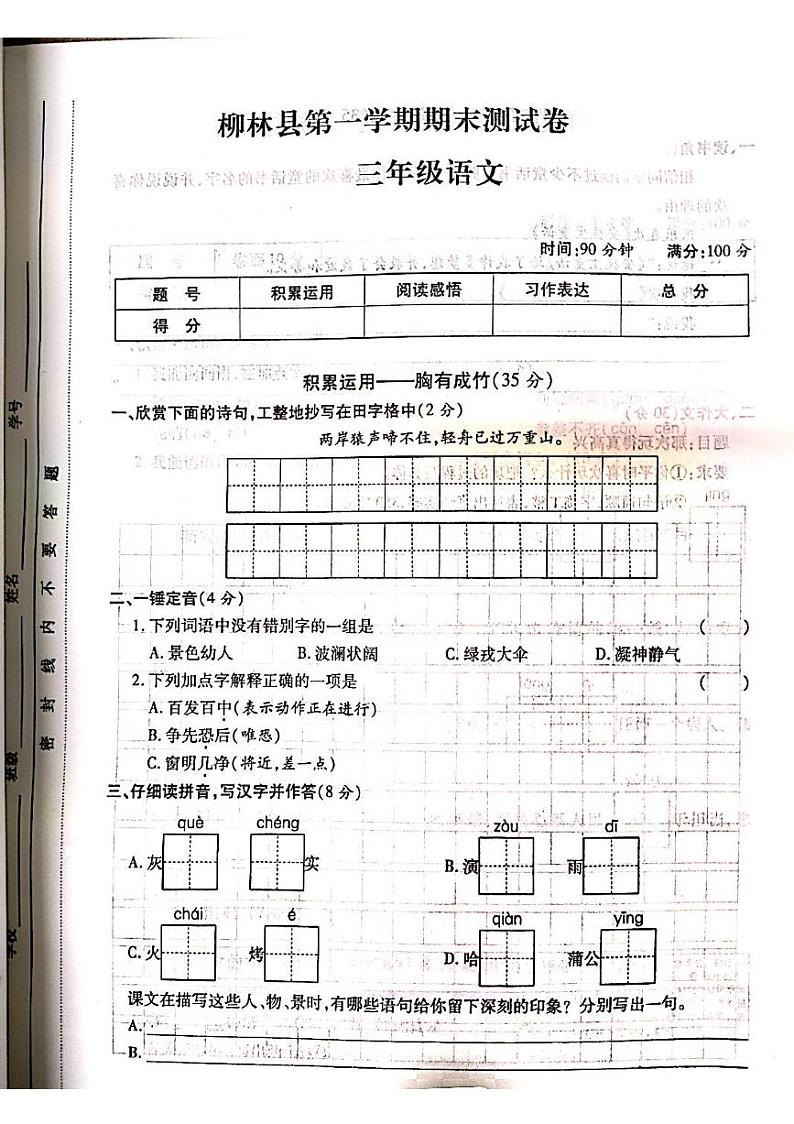 柳林县第一学期期末测试卷
三年级语文
时间:90分钟 满分:100分
题 号 积累运用 阅读感悟 习作表达 总 分
得 分
积累运用——胸有成竹(35分)
一、欣赏下面的诗句,工整地抄写在田字格中(2分)
两岸猿声啼不住,轻舟已过万重山。
二、一锤定音(4分)
1.下列词语中没有错别字的一组是 ( )
A.景色幼人 B.波澜状阔 C.绿戎大伞 D.凝神静气
2.下列加点字解释正确的一项是 ( )
A.百发百中(表示动作正在进行)
B.争先恐后(唯恐)
C.窗明几净(将近,差一点)
三、仔细读拼音,写汉字并作答(8分)
què chéng zòu dī
A.灰 实 B.演 雨
chái é qiàn yīng
C.火 烤 D.哈 蒲公
课文在描写这些人、物、景时,有哪些语句给你留下深刻的印象?分别写出一句。
A.
B.
学校 班级 姓名 学号
密 封 线 内 不 要 答 题